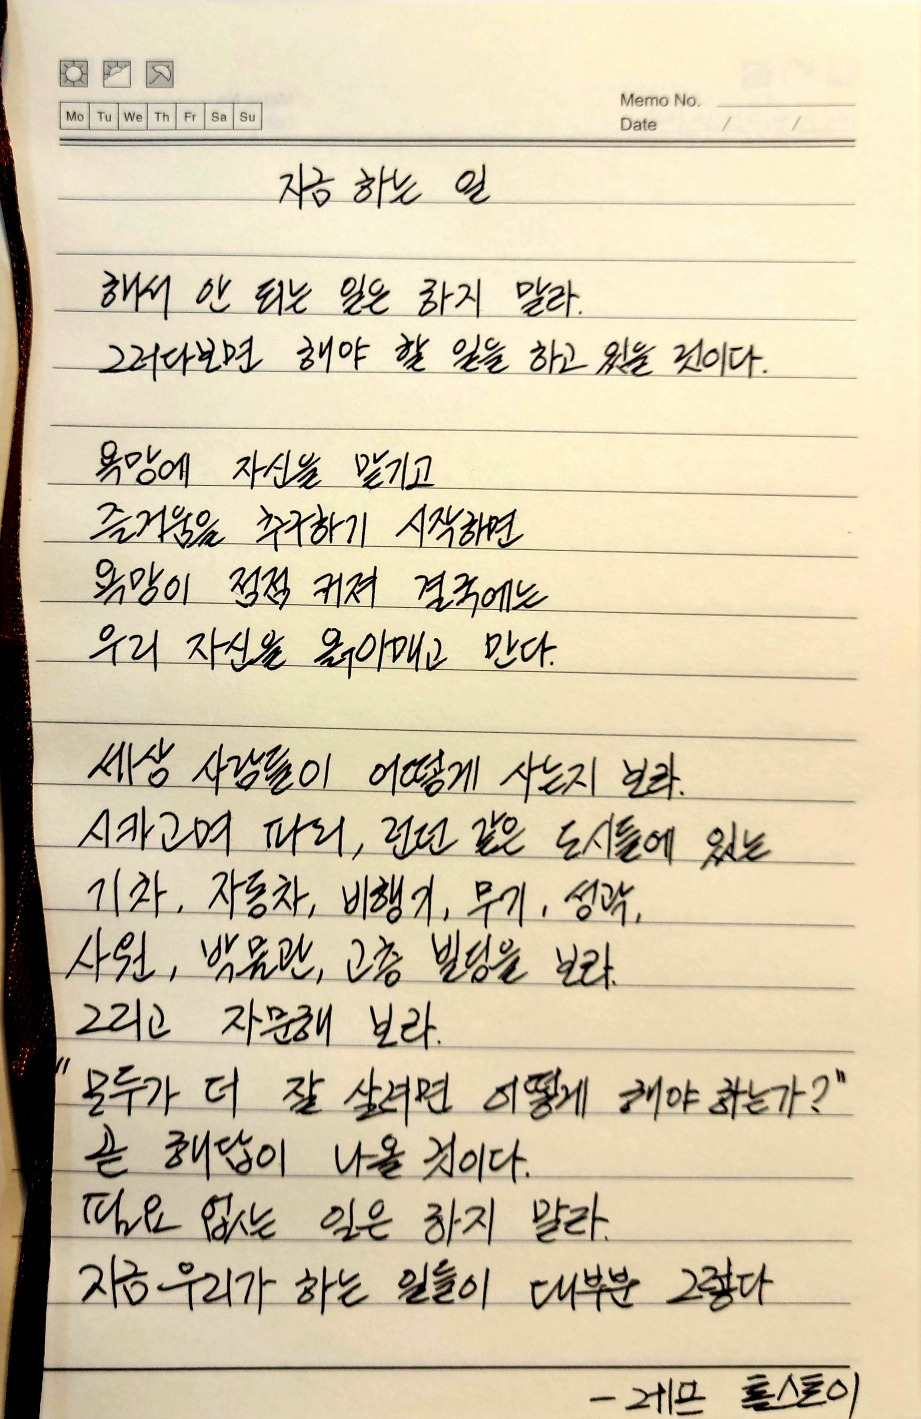 Memo No.
Mo Tu We Th Fr Sa Su
Date / /
지금 하는 일
해서 안 되는 일은 하지 말라.
그러다보면 해야 할 일을 하고 있을 것이다.
욕망에 자신을 맡기고
즐거움을 추구하기 시작하면
욕망이 점점 커져 결국에는
우리 자신을 옭아매고 만다.
세상 사람들이 어떻게 사는지 보라.
시카고며 파리, 런던 같은 도시들에 있는
기차, 자동차, 비행기, 무기, 성곽,
사원, 박물관, 고층 빌딩을 보라.
그리고 자문해 보라.
"모두가 더 잘 살려면 어떻게 해야 하는가?"
곧 해답이 나올 것이다.
필요 없는 일은 하지 말라.
지금 우리가 하는 일들이 대부분 그렇다
- 레프 톨스토이